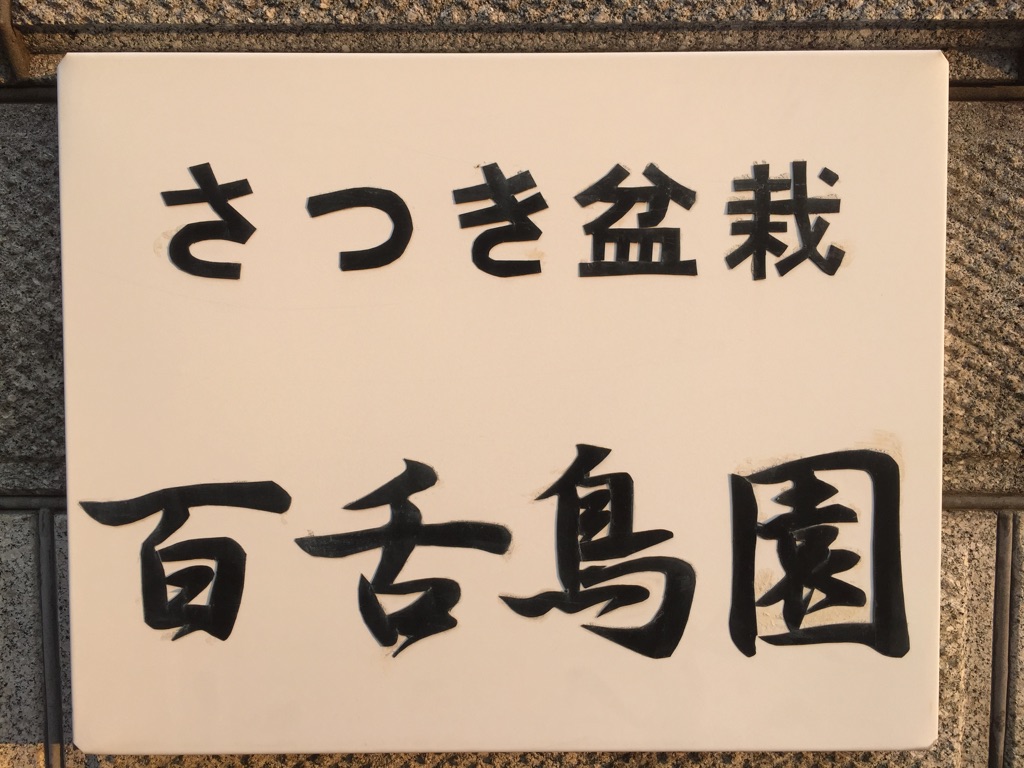 さつき盆栽
百舌鳥園